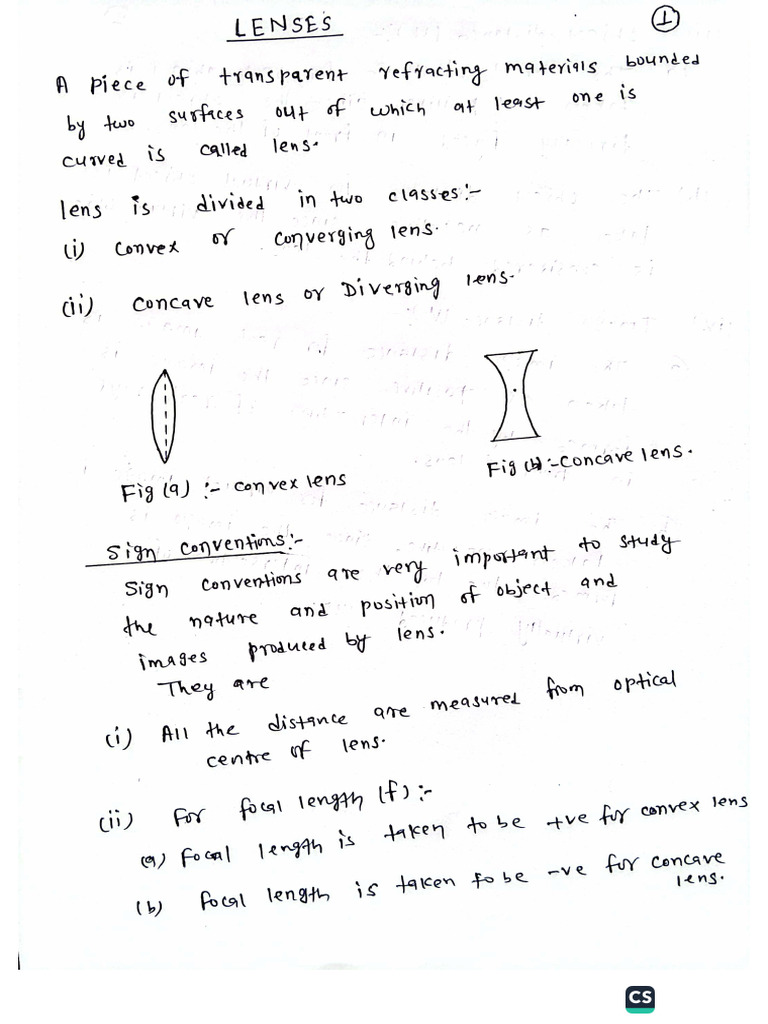 LENSES
1
A piece of transparent refracting materials bounded
by two surfaces out of which at least one is
curved is called lens.
lens is divided in two classes:-
(i) convex or converging lens.
(ii) Concave lens or Diverging lens.
Fig (a) :- convex lens
Fig (b) :- Concave lens.
Sign conventions:-
Sign conventions are very important to study
the nature and position of object and
images produced by lens.
They are
(i) All the distance are measured from optical
centre of lens.
(ii) For focal length (f):-
(a) Focal length is taken to be +ve for convex lens
(b) focal length is taken to be -ve for concave
lens.
CS